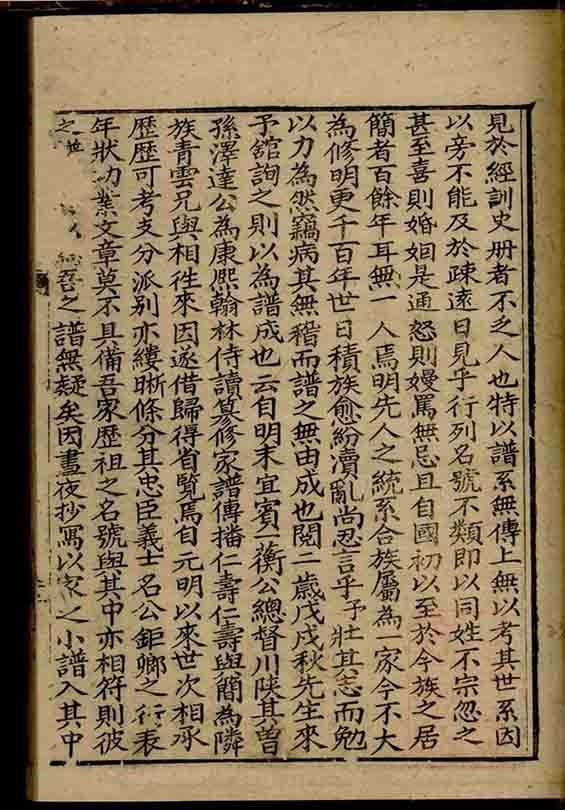 見於經訓史册者不乏人也特以譜系無傳上無以考其世系因
以旁不能及於疎逺日見乎行列名號不類即以同姓不宗忽之
甚至喜則婚姻是通怒則嫚罵無忌且自國初以至於今族之居
簡者百餘年耳無一人焉明先人之統系合族屬為一家今不大
為修明更千百年世日積族愈紛瀆亂尚忍言乎予壯其志而勉
以力為然竊病其無稽而譜之無由成也閱二歲戊戌秋先生來
予舘詢之則以為譜成也云自明末宜賓一蘅公總督川陝其曾
孫澤達公為康熙翰林侍讀纂修家譜傳播仁壽仁壽與簡為隣
族青雲兄與相徃來因遂借歸得省覽焉自元明以來世次相承
歷歷可考支分派别亦縷晰條分其忠臣義士名公鉅鄉之行表
年狀功業文章莫不具備吾家歷祖之名號與其中亦相符則彼
之 無吾之譜無疑矣因晝夜抄寫以家之小譜入其中